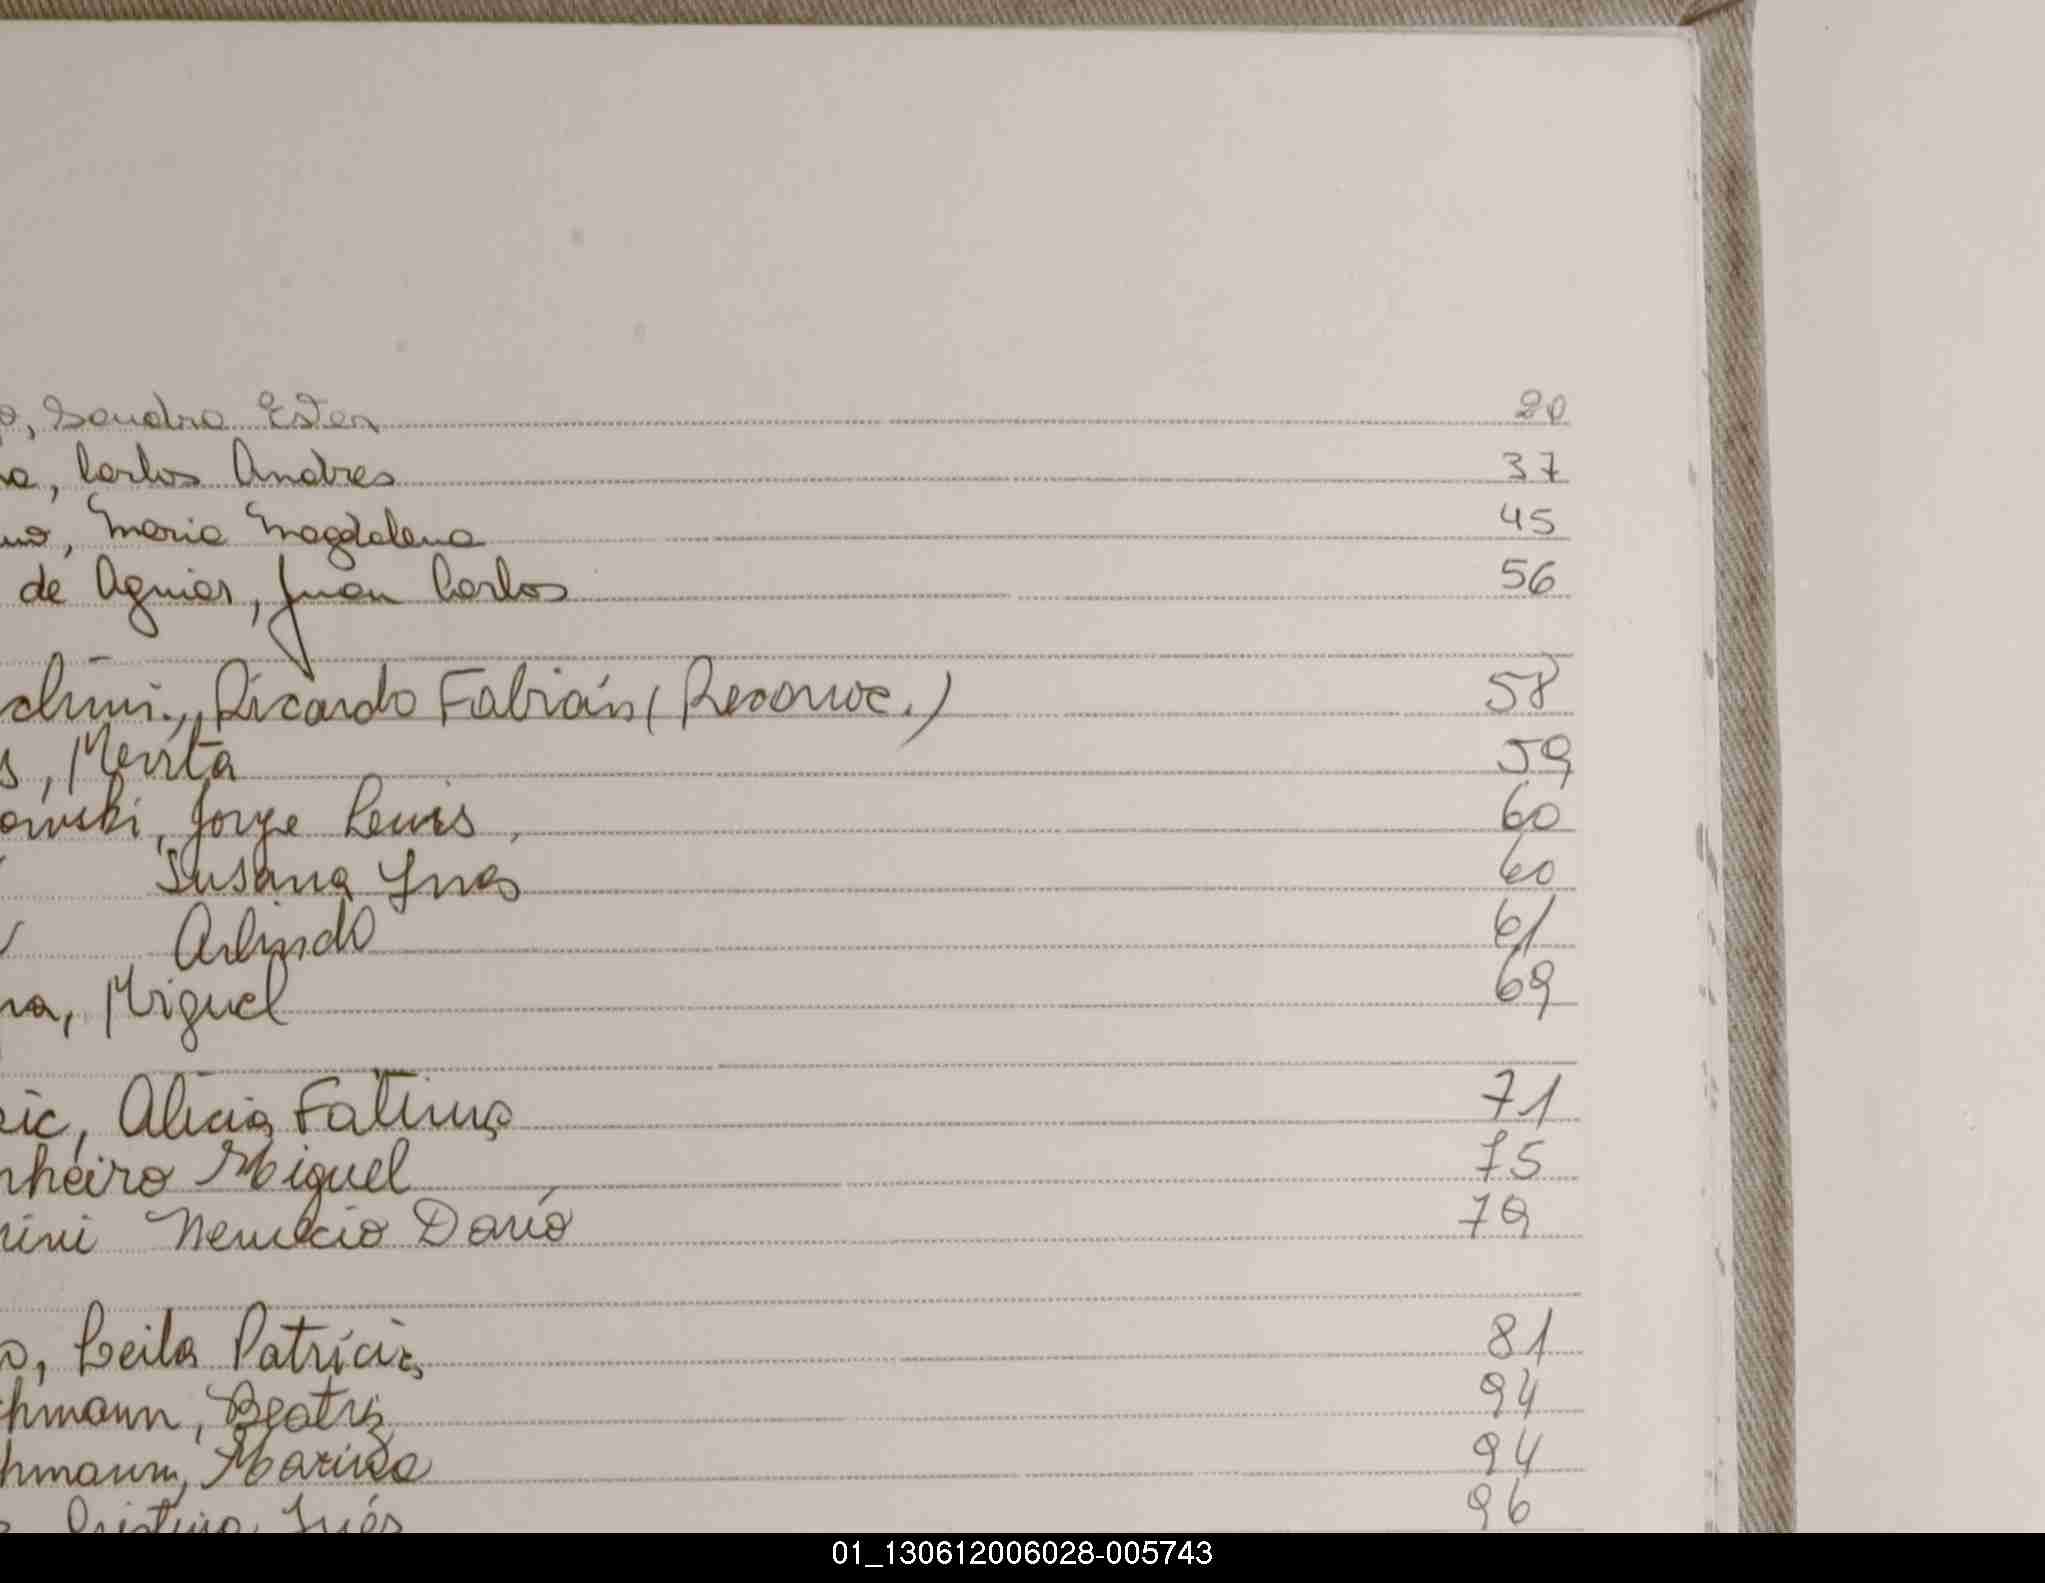 o, Sandra Ester 20
na, Carlos Andres 37
no, Maria Magdalena 45
de Aguiar, Juan Carlos 56
chini., Ricardo Fabián (Reconoc.) 58
s, Mevita 59
owski, Jorge Luis, 60
Susana Ines 60
Arlindo 61
na, Miguel 69
ic, Alicia Fatima 71
nheiro Miguel 75
nini Nemecio Darío 79
o, Leila Patricia 81
hmann, Beatriz 94
hmann, Marina 94
Cristina Inés 96
01_130612006028-005743